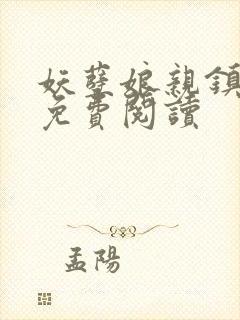 妖孽娘親鎮
免費閱讀
孟陽